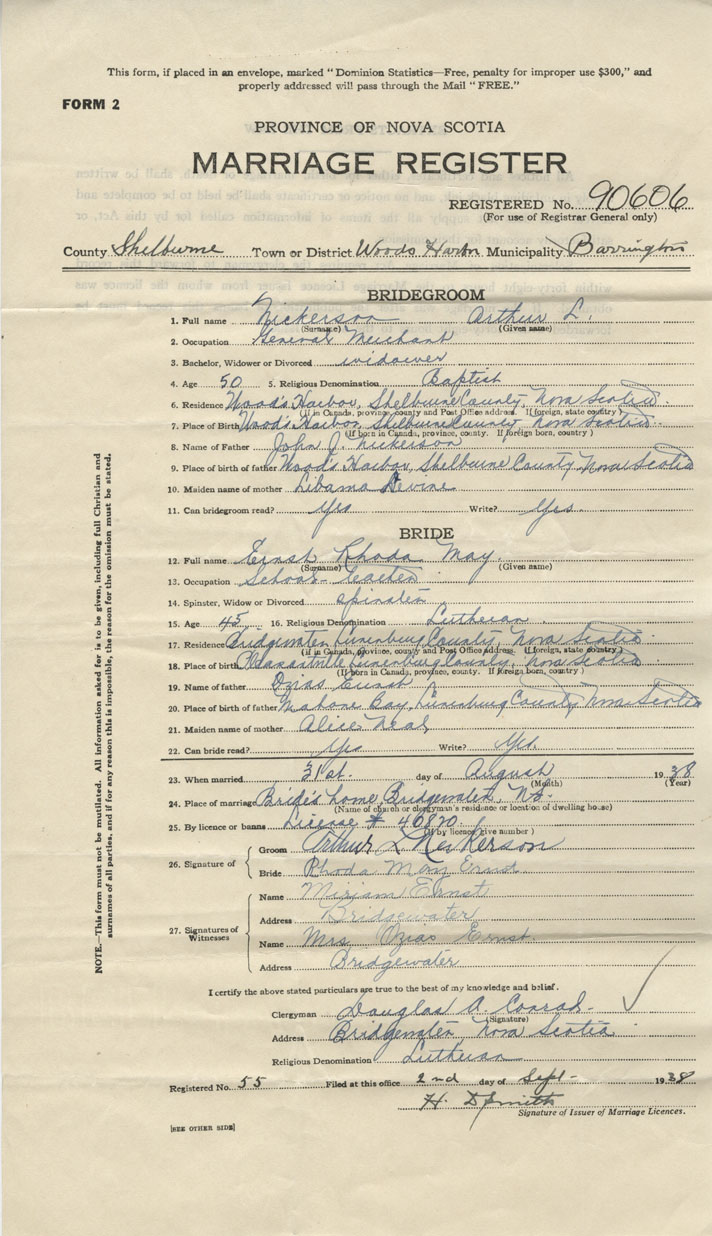 This form, if placed in an envelope, marked "Dominion Statistics—Free, penalty for improper use $300," and
properly addressed will pass through the Mail "FREE."
FORM 2
PROVINCE OF NOVA SCOTIA
MARRIAGE REGISTER
REGISTERED No. 90606
(For use of Registrar General only)
County Shelburne Town or District Woods Harbor Municipality Barrington
BRIDEGROOM
1. Full name Nickerson Arthur L.
(Surname) (Given name)
2. Occupation General Merchant
3. Bachelor, Widower or Divorced widower
4. Age 50 5. Religious Denomination Baptist
6. Residence Wood's Harbor, Shelburne County, Nova Scotia
(if in Canada, province, county and Post Office address. If foreign, state country)
7. Place of Birth Wood's Harbor, Shelburne County, Nova Scotia
(If born in Canada, province, county. If foreign born, country)
8. Name of Father John J. Nickerson
9. Place of birth of father Wood's Harbor, Shelburne County, Nova Scotia
10. Maiden name of mother Devine
11. Can bridegroom read? Yes Write? Yes.
BRIDE
12. Full name Ernst Rhoda May.
(Surname) (Given name)
13. Occupation School-teacher
14. Spinster, Widow or Divorced spinster
15. Age 45 16. Religious Denomination Lutheran
17. Residence Bridgewater, Lunenburg County, Nova Scotia
(if in Canada, province, county and Post Office address. If foreign, state country)
18. Place of birth Lunenburg County, Nova Scotia
(If born in Canada, province, county. If foreign born, country)
19. Name of father Ozias Ernst
20. Place of birth of father Mahone Bay, Lunenburg County, Nova Scotia
21. Maiden name of mother Alice Neal
22. Can bride read? Yes Write? Yes.
23. When married 31st. day of August 1938
(Month) (Year)
24. Place of marriage Bride's home, Bridgewater, N.S.
(Name of church or clergyman's residence or location of dwelling house)
25. By licence or banns License # 46870
(If by licence give number)
26. Signature of
Groom Arthur L Nickerson
Bride Rhoda May Ernst
27. Signatures of Witnesses
Name Miriam Ernst
Address Bridgewater
Name Mrs Ozias Ernst
Address Bridgewater
I certify the above stated particulars are true to the best of my knowledge and belief.
Clergyman Douglas A. Conrad
(Signature)
Address Bridgewater Nova Scotia
Religious Denomination Lutheran
Registered No. 55 Filed at this office 2nd day of Sept- 1938
H. D Smith
Signature of Issuer of Marriage Licences.
[SEE OTHER SIDE]
NOTE.—This form must not be mutilated. All information asked for is to be given, including full Christian and
surnames of all parties, and if for any reason this is impossible, the reason for the omission must be stated.